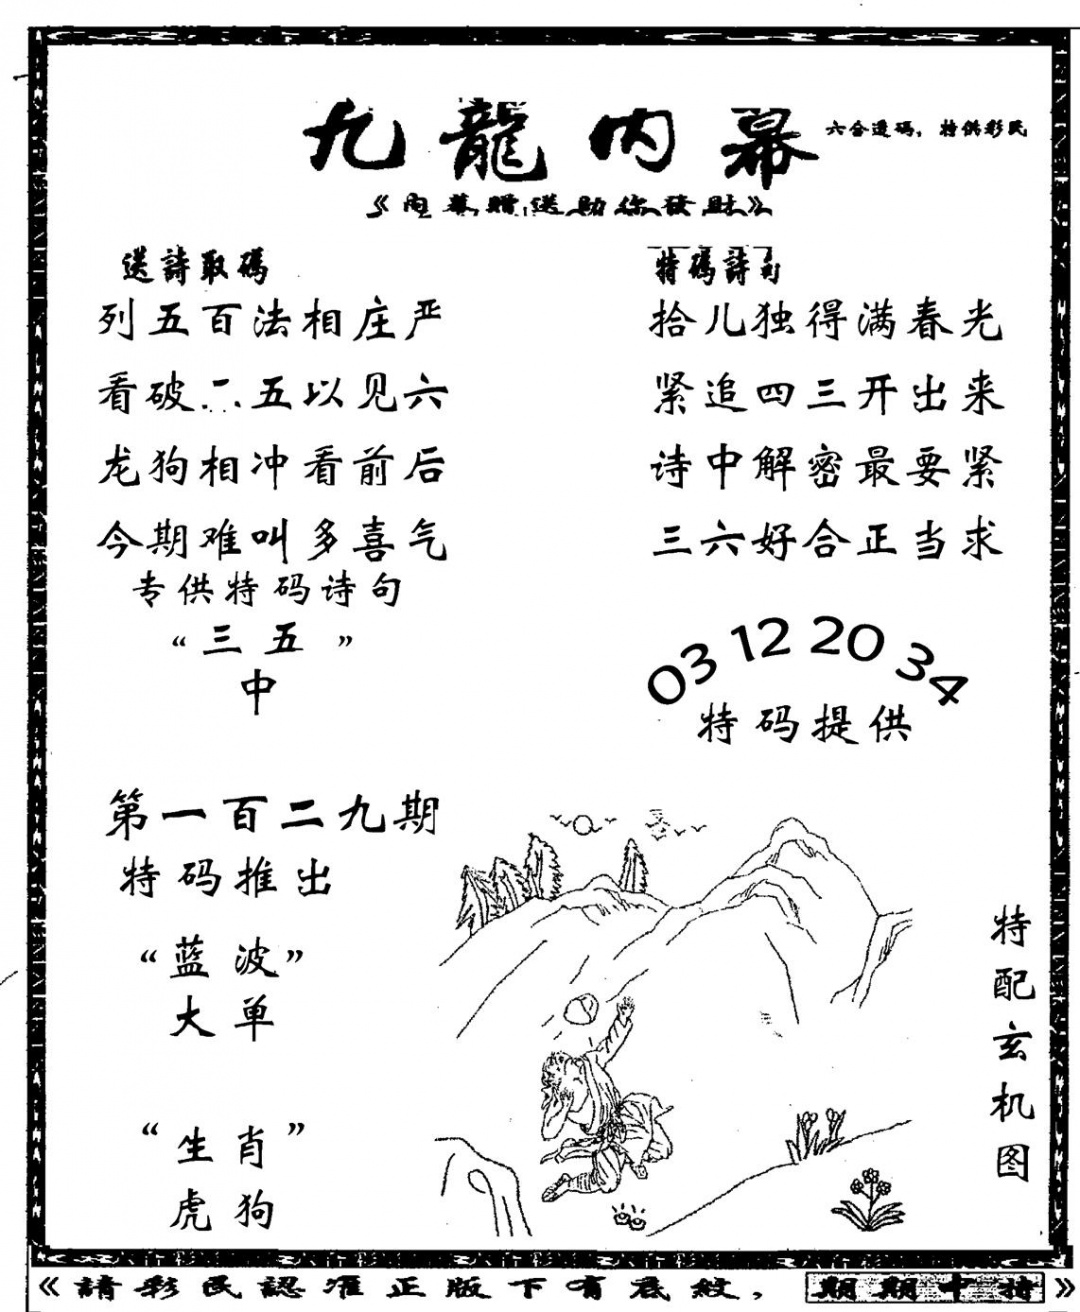 九龍内幕
六合透码，特供彩民
《内幕赠送助你發財》
送詩取碼
列五百法相庄严
看破二五以见六
龙狗相冲看前后
今期难叫多喜气
专供特码诗句
“三五”
中
特碼詩句
拾儿独得满春光
紧追四三开出来
诗中解密最要紧
三六好合正当求
03 12 20 34
特码提供
第一百二九期
特码推出
“蓝波”
大单
“生肖”
虎狗
特配玄机图
《請彩民認准正版下有底紋，期期中特》